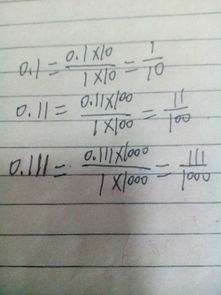 0.1 = 0.1×10 / 1×10 = 1/10
0.11 = 0.11×100 / 1×100 = 11/100
0.111 = 0.111×1000 / 1×1000 = 111/1000